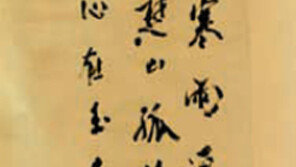 寒雨連
楚山孤
心在玉